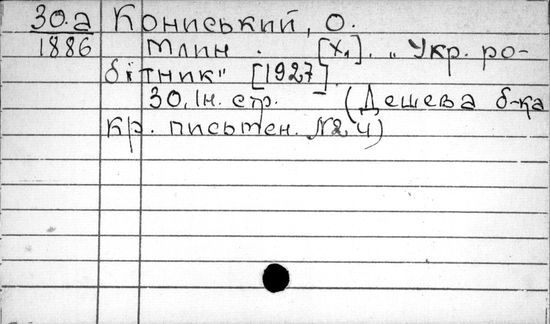 30.а Кониський, О.
1886 Млин. [Х,]. "Укр. ро-
бітник" [1927].
30, Iн. стр. (Дешева б-ка
кр. письмен. №24)